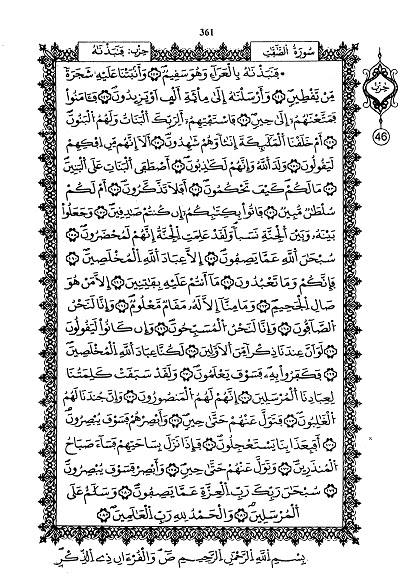 361
سُورَةُ الصَّٰفَّٰتِ
حزب: فَنَبَذْنَٰهُ
حزب
46
فنبذنه بالعراء وهو سقيم وأنبتنا عليه شجرة
من يقطين وأرسلنه إلى مائة ألف أو يزيدون فـٔامنوا
فمتعنهم إلى حين فاستفتهم ألربك البنات ولهم البنون
أم خلقنا الملئكة إنثا وهم شهدون ألا إنهم من إفكهم
ليقولون ولد الله وإنهم لكذبون أصطفى البنات على البنين
ما لكم كيف تحكمون أفلا تذكرون أم لكم
سلطن مبين فاتوا بكتبكم إن كنتم صدقين وجعلوا
بينه وبين الجنة نسبا ولقد علمت الجنة إنهم لمحضرون
سبحن الله عما يصفون إلا عباد الله المخلصين
فإنكم وما تعبدون ما أنتم عليه بفتنين إلا من هو
صال الجحيم وما منا إلا له مقام معلوم وإنا لنحن
الصافون وإنا لنحن المسبحون وإن كانوا ليقولون
لو أن عندنا ذكرا من الأولين لكنا عباد الله المخلصين
فكفروا به فسوف يعلمون ولقد سبقت كلمتنا
لعبادنا المرسلين إنهم لهم المنصورون وإن جندنا لهم
الغلبون فتول عنهم حتى حين وأبصرهم فسوف يبصرون
أفبعذابنا يستعجلون فإذا نزل بساحتهم فساء صباح
المنذرين وتول عنهم حتى حين وأبصر فسوف يبصرون
سبحن ربك رب العزة عما يصفون وسلم على
المرسلين والحمد لله رب العلمين
بسم الله الرحمن الرحيم ص والقرءان ذي الذكر